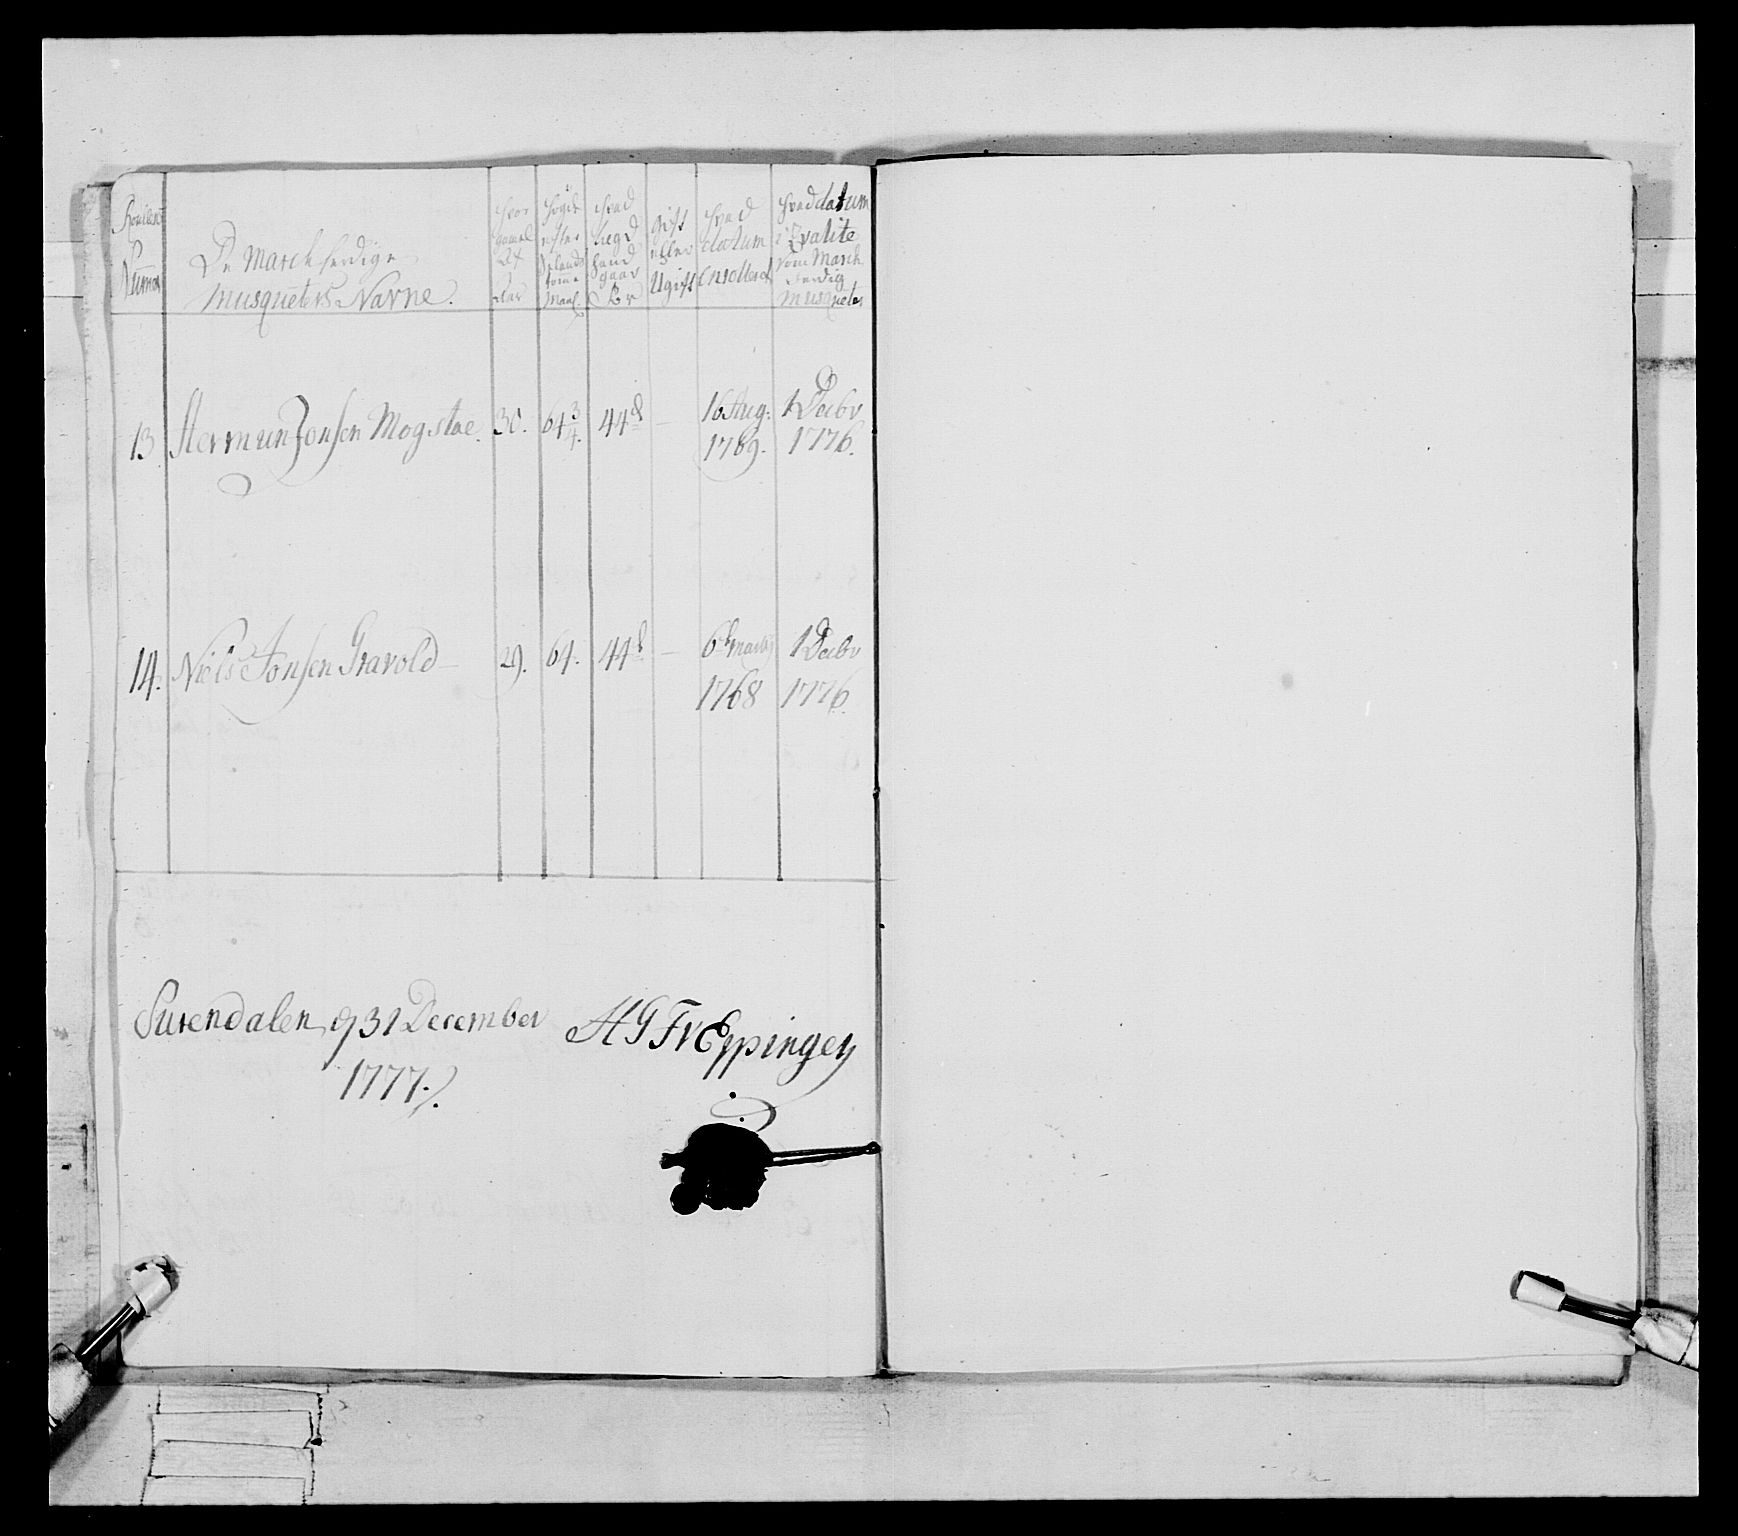 Roullens Numer
De Marchferdige
Musqueters Navne.
hvor gamel
Aar
høyde efter Siælands tomme Maal.
hvad Legd hand gaar for
Gift eller Ugift
hvad datum Enrollered
hvad datum i Qvalite som March ferdig Musqueter
13. Hermun Jonsen Mogstae. 30. 64 3/4. 44d — 16 Aug. 1769. 1 Decbr 1776.
14. Niels Jonsen Gravold 29. 64. 44d — 6d Marti 1768 1 Decbr 1776.
Surendalen d 31 December
1777.
HGFv Eppingen